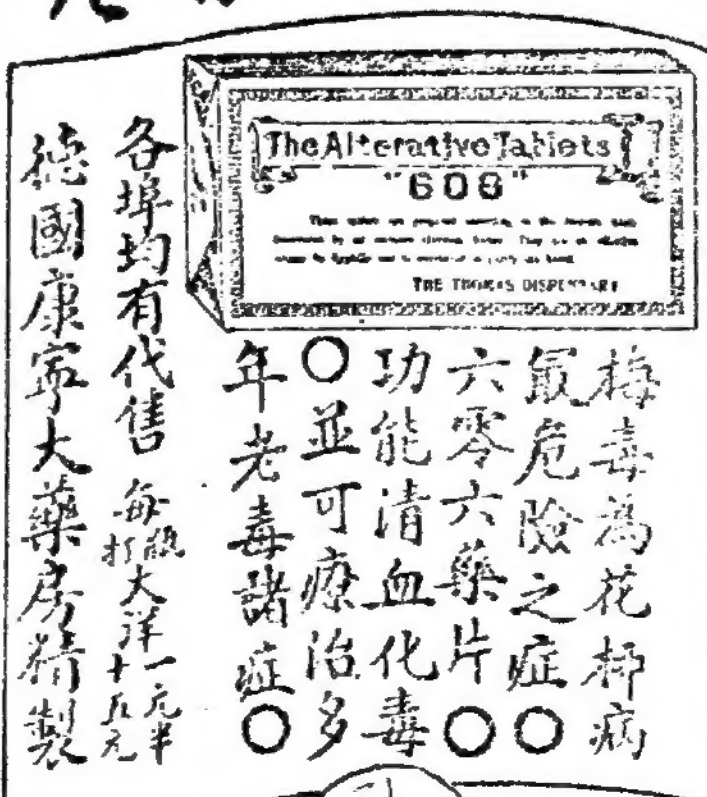 The Alterative Tablets
"606"
THE THOMAS DISPENSARY
梅毒為花柳病
最危險之症〇〇
六零六藥片〇〇
功能清血化毒
〇並可療治多
年老毒諸症〇
各埠均有代售 每瓶大洋一元半 打十五元
德國康寧大藥房精製